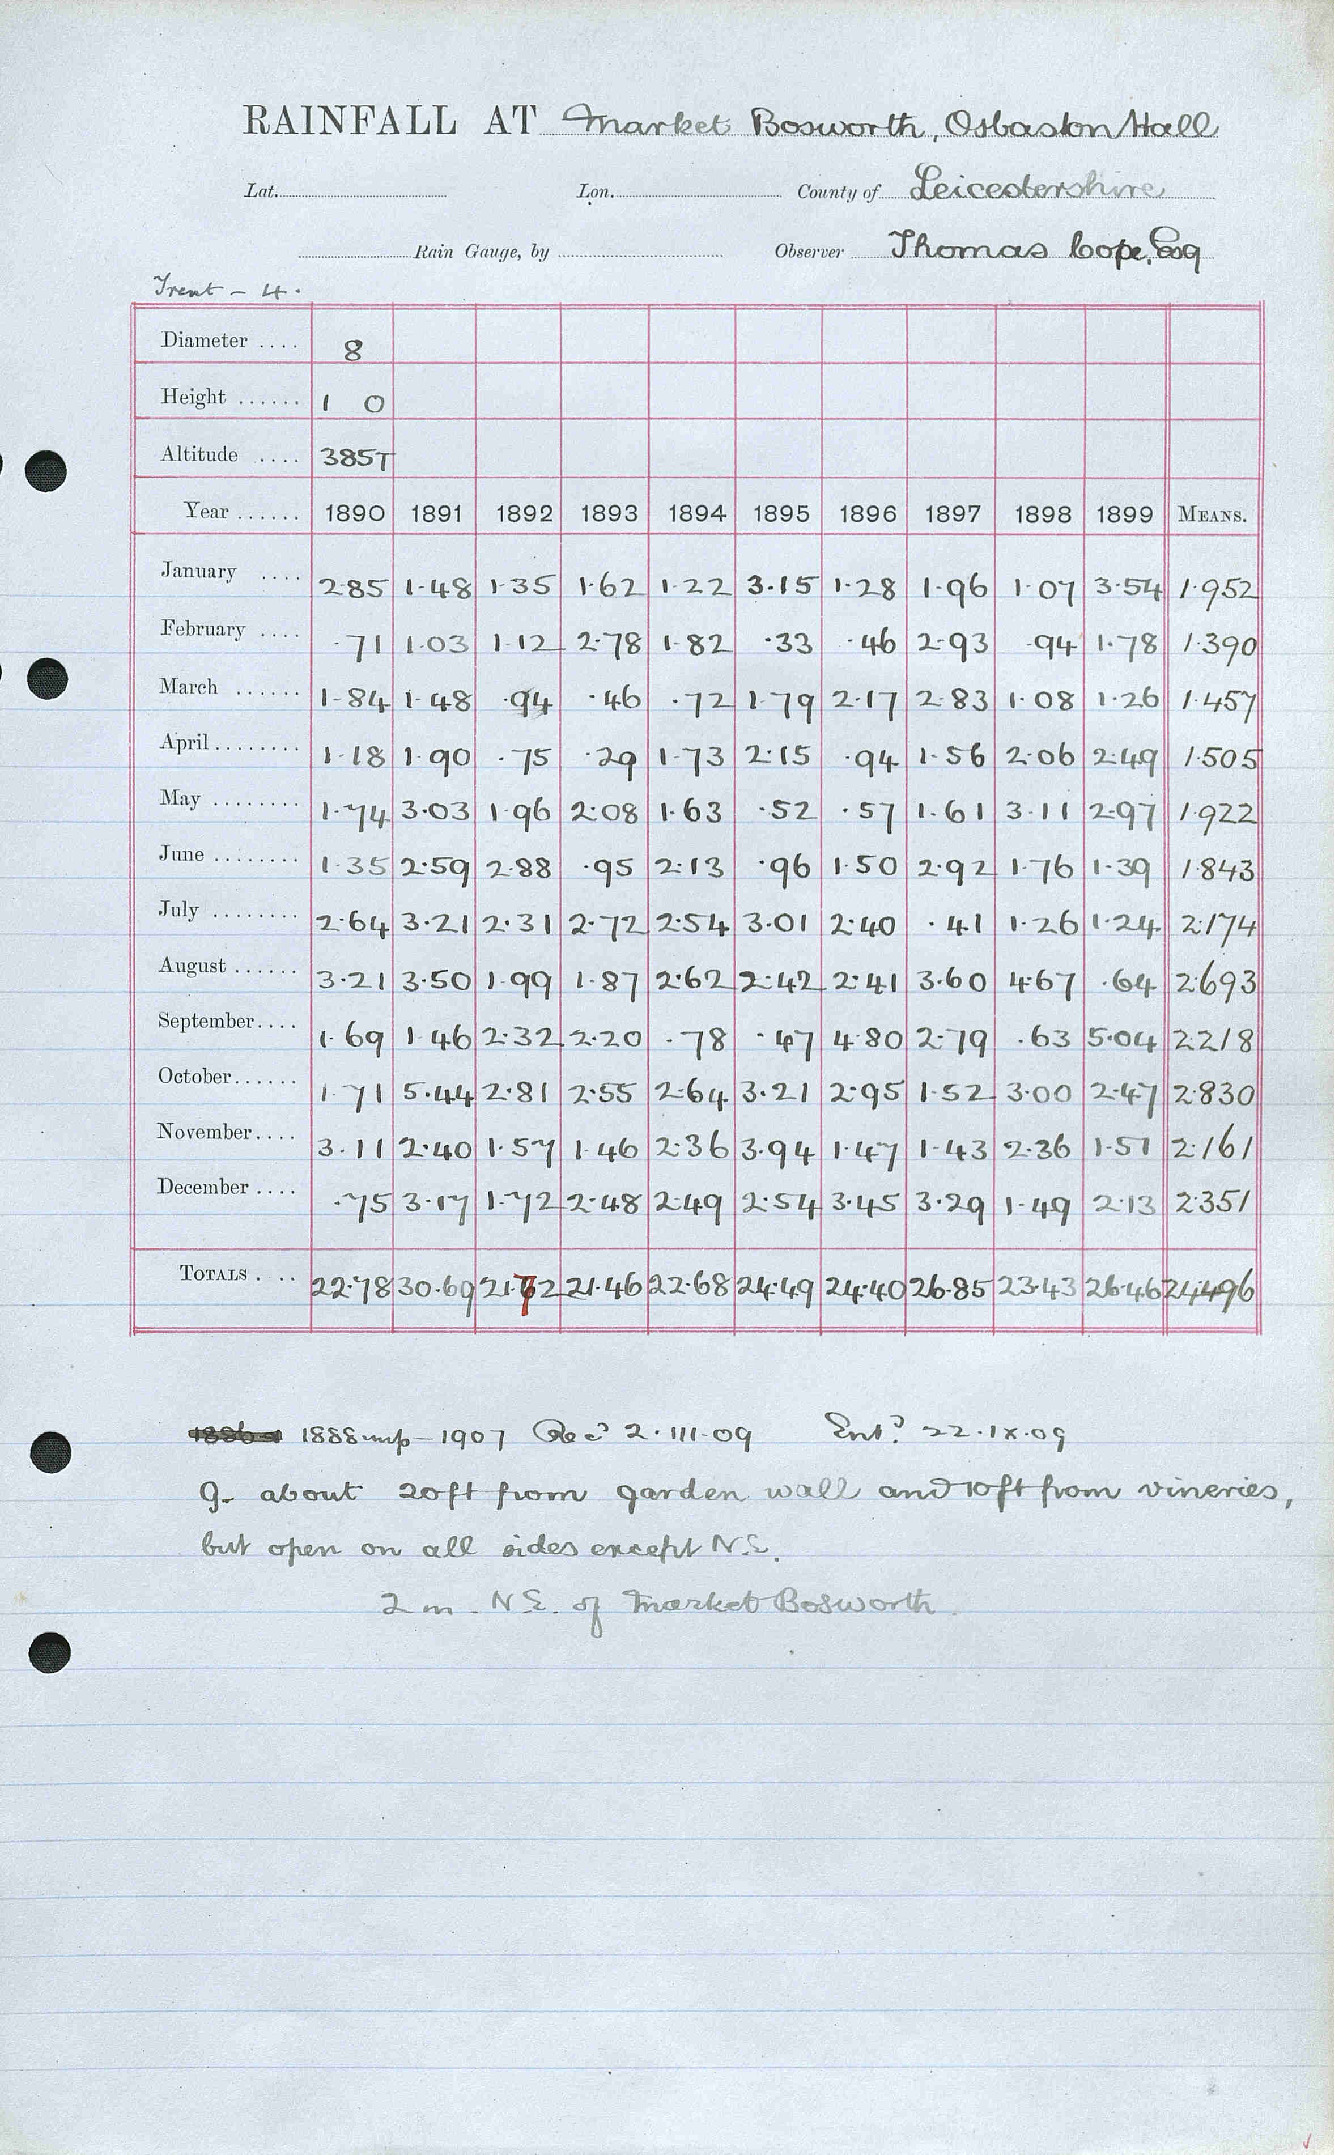 RAINFALL AT Market Bosworth, Osbaston Hall
Lat. Lon. County of Leicestershire
Rain Gauge, by Observer Thomas Cope, Esq
Trent - 4.
Diameter .... 8
Height ...... 1 0
Altitude .... 385T
Year ...... 1890 1891 1892 1893 1894 1895 1896 1897 1898 1899 MEANS.
January .... 2.85 1.48 1.35 1.62 1.22 3.15 1.28 1.96 1.07 3.54 1.952
February .... .71 1.03 1.12 2.78 1.82 .33 .46 2.93 .94 1.78 1.390
March ...... 1.84 1.48 .94 .46 .72 1.79 2.17 2.83 1.08 1.26 1.457
April........ 1.18 1.90 .75 .29 1.73 2.15 .94 1.56 2.06 2.49 1.505
May ........ 1.74 3.03 1.96 2.08 1.63 .52 .57 1.61 3.11 2.97 1.922
June ........ 1.35 2.59 2.88 .95 2.13 .96 1.50 2.92 1.76 1.39 1.843
July ........ 2.64 3.21 2.31 2.72 2.54 3.01 2.40 .41 1.26 1.24 2.174
August ...... 3.21 3.50 1.99 1.87 2.62 2.42 2.41 3.60 4.67 .64 2.693
September.... 1.69 1.46 2.32 2.20 .78 .47 4.80 2.79 .63 5.04 2.218
October...... 1.71 5.44 2.81 2.55 2.64 3.21 2.95 1.52 3.00 2.47 2.830
November.... 3.11 2.40 1.57 1.46 2.36 3.94 1.47 1.43 2.36 1.51 2.161
December .... .75 3.17 1.72 2.48 2.49 2.54 3.45 3.29 1.49 2.13 2.351
TOTALS . .. 22.78 30.69 21.72 21.46 22.68 24.49 24.40 26.85 23.43 26.46 24.496
1888 imp - 1907 Recd 2.III.09 Entd 22.IX.09
G. about 20ft from garden wall and 10ft from vineries,
but open on all sides except N.E.
2 m. N.E. of Market Bosworth.